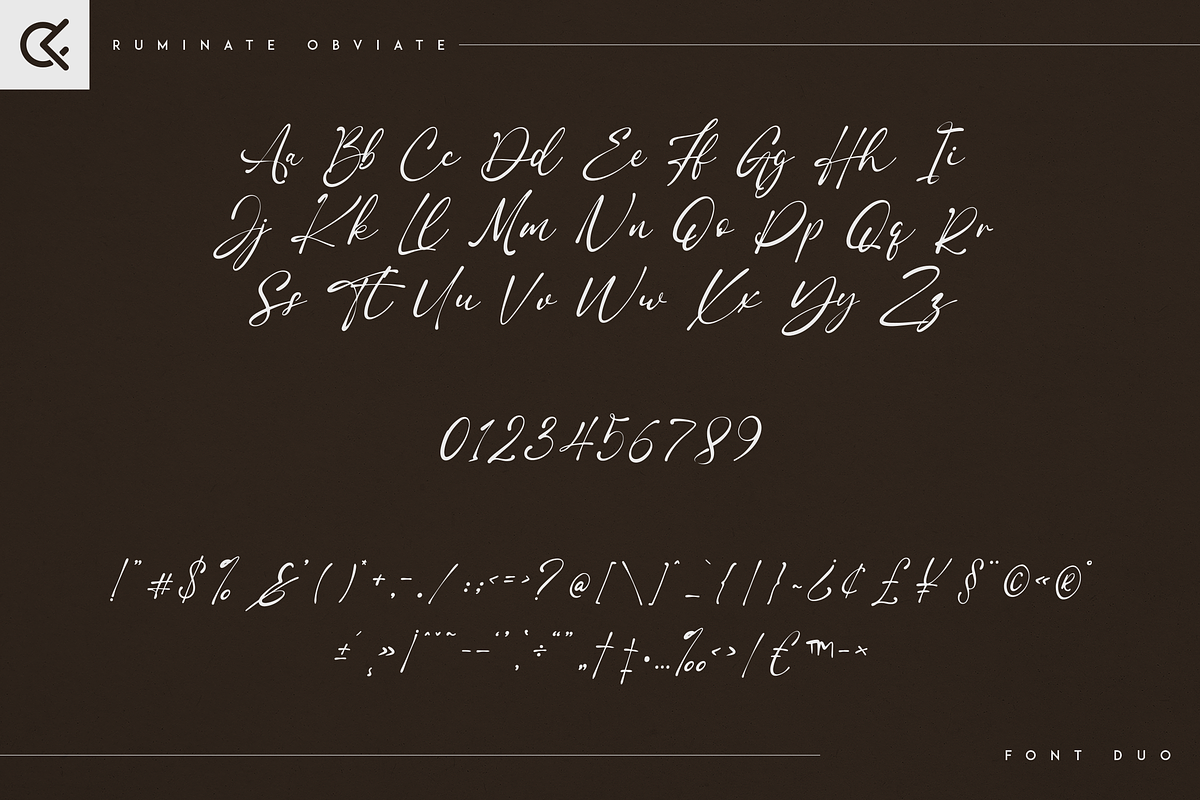 RUMINATE OBVIATE
Aa Bb Cc Dd Ee Ff Gg Hh Ii
Jj Kk Ll Mm Nn Oo Pp Qq Rr
Ss Tt Uu Vv Ww Xx Yy Zz
0123456789
!"#$%&'()*+,-./:;<=>?@[\]^_`{|}~¿¢£¥§¨©«®°
±´¸»¡ˆˇ˘˜–—‘’‚‛÷“”„†‡•…‰‹›/€™−×
FONT DUO